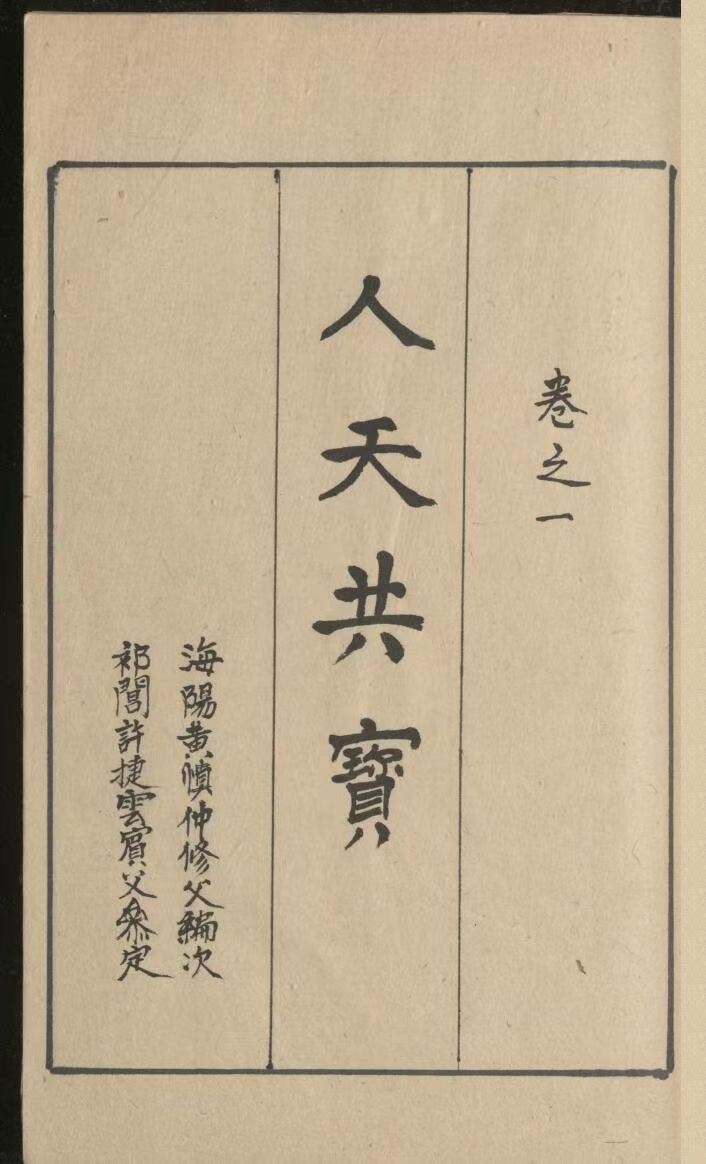 卷之一
人天共寶
海陽黃慎仲修父編次
祁閶許捷雲賓父叅定